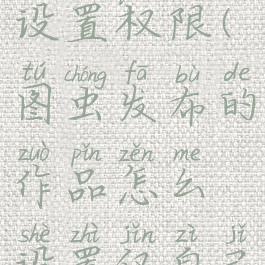 设置权限(
tú chóng fā bù de
图虫发布的
zuò pǐn zěn me
作品怎么
shè zhì jǐn zì jǐ